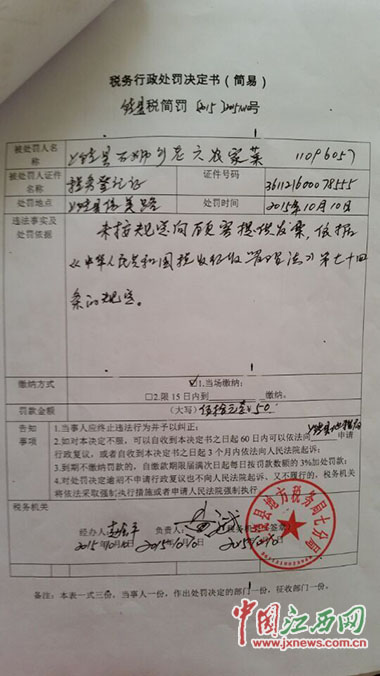 税务行政处罚决定书（简易）
饶县税简罚〔2015〕号
被处罚人名称 上饶县石狮乡老六农家菜 11096057
被处罚人证件名称 税务登记证 证件号码 36112160078555
处罚地点 上饶县信美路 处罚时间 2015年10月10日
违法事实及处罚依据
未按规定向顾客提供发票，依据
《中华人民共和国税收征收管理法》第七十四
条的规定。
缴纳方式 ☑1.当场缴纳；
□2.限15日内到 缴纳。
罚款金额 （大写）伍拾元整 ¥50.
告知事项
1.当事人应终止违法行为并予以纠正；
2.如对本决定不服，可以自收到本决定书之日起60日内可以依法向上饶县地税局申请
行政复议，或者自收到本决定书之日起3个月内依法向人民法院起诉；
3.到期不缴纳罚款的，自缴款期限届满次日起每日按罚款数额的3%加处罚款；
4.对处罚决定逾期不申请行政复议也不向人民法院起诉、又不履行的，税务机关
将依法采取强制执行措施或者申请人民法院强制执行。
税务机关
经办人 负责人： 税务机关（签章）
2015年10月10日 2015年10月10日 2015年10月10日
县地方税务局七分局
备注：本表一式三份，当事人一份，作出处罚决定的部门一份，征收部门一份。
中国江西网
www.jxnews.com.cn